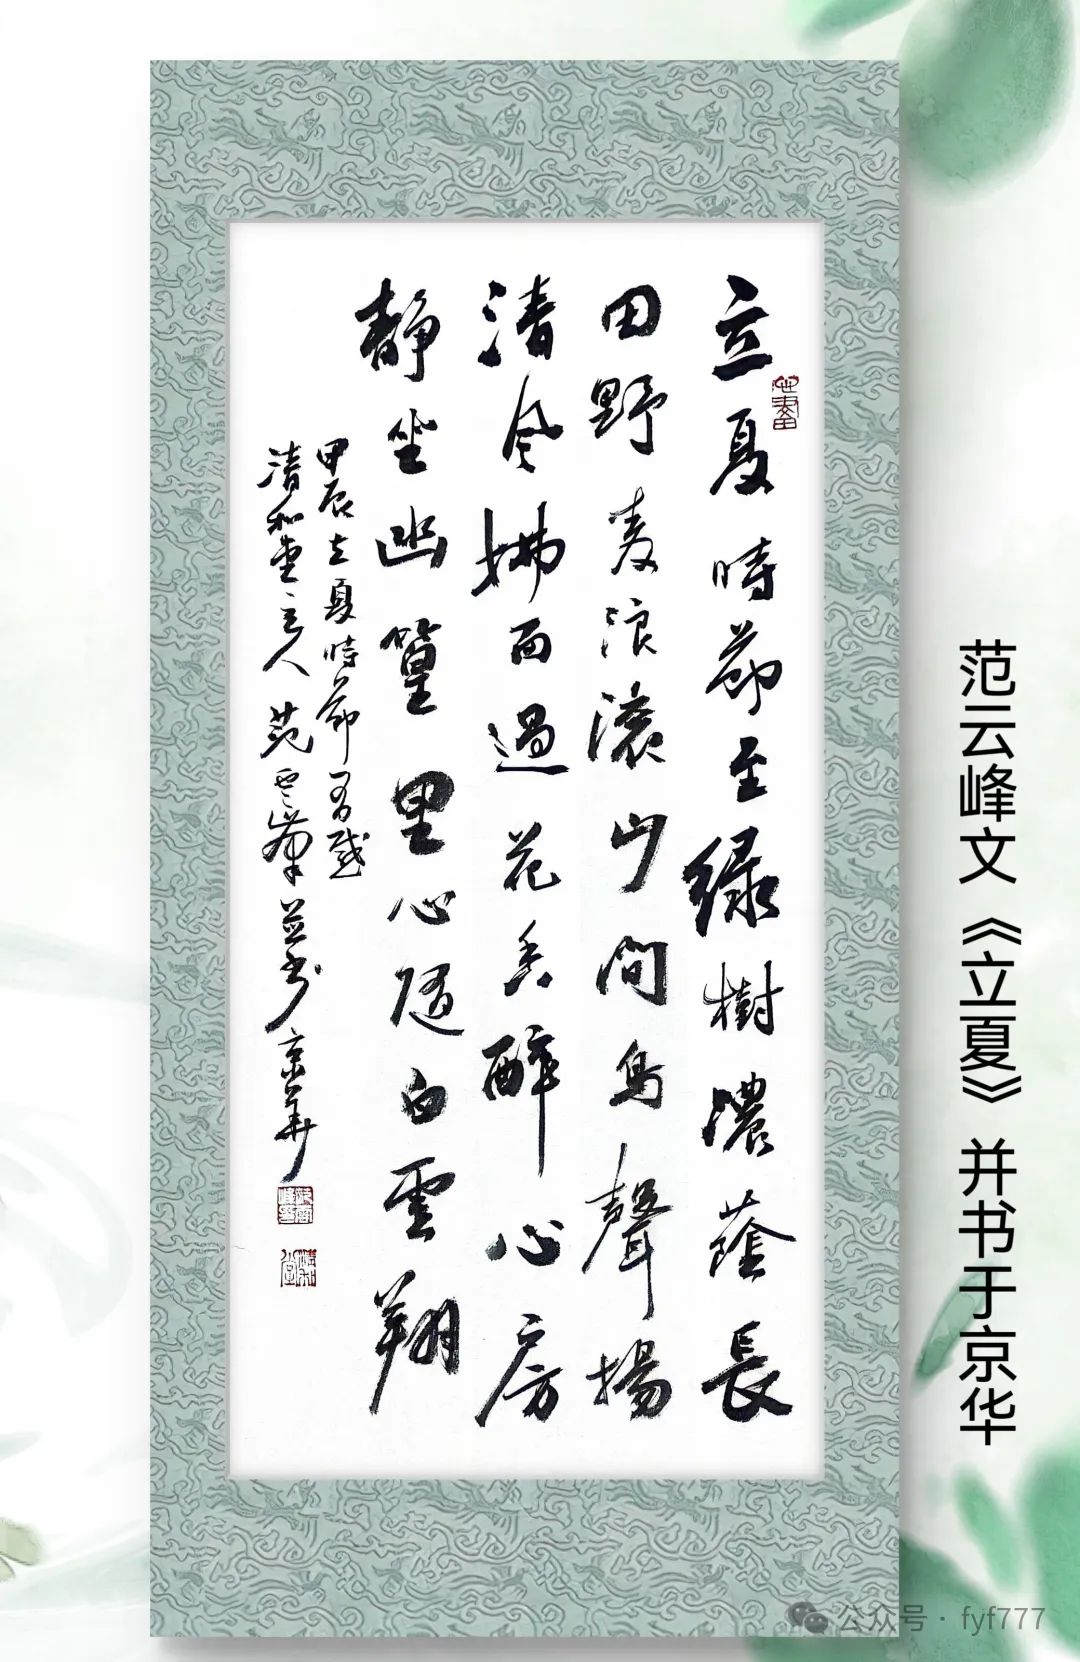 立夏時節至綠樹濃蔭長
田野麦浪滾山間鳥聲揚
清风拂面過花香醉心房
静坐幽篁里心随白雲翔
甲辰立夏時節有感
清和堂主人范云峰並书京華
范云峰文《立夏》并书于京华
公众号·fyf777